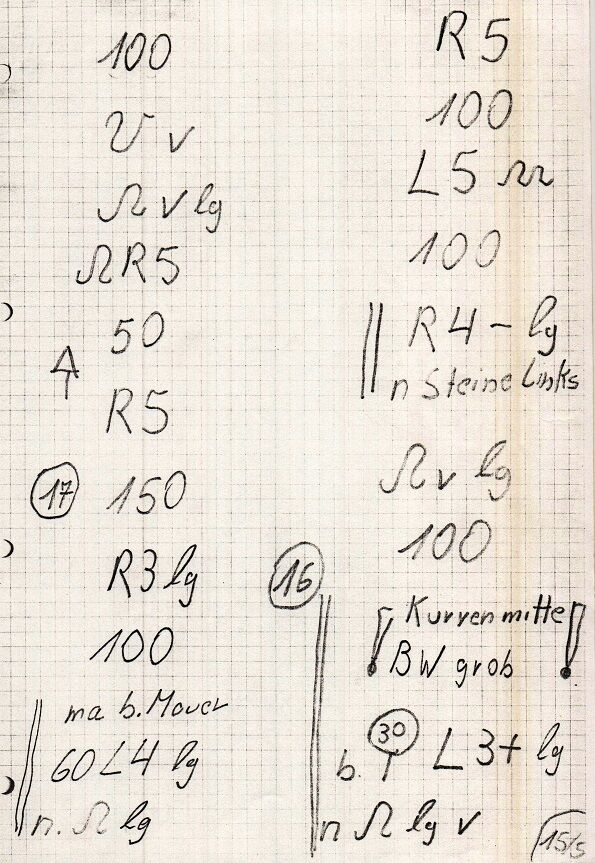 100
v
Ω v lg
Ω R5
50
R5
17 150
R3 lg
100
ma b. Mauer
60 L4 lg
n. Ω lg
R5
100
L5
100
R4 - lg
n Steine Links
Ω v lg
100
16
! Kurvenmitte !
BW grob
30
b. L3+ lg
n Ω lg v